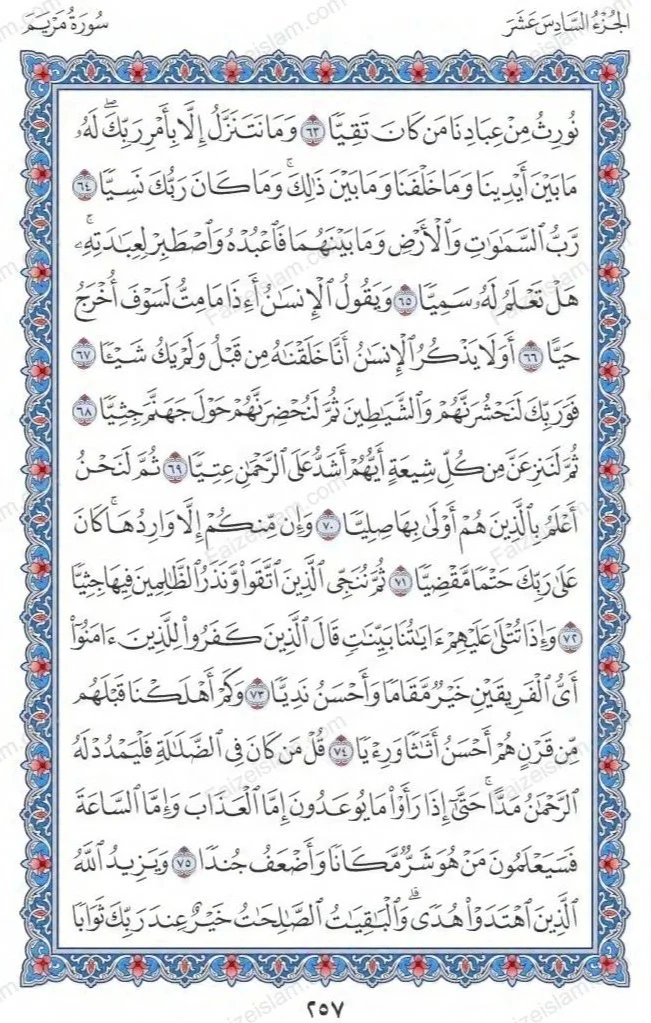 الجُزْءُ السَّادِسَ عَشَرَ
سُورَةُ مَرْيَمَ
نُورِثُ مِنْ عِبَادِنَا مَن كَانَ تَقِيًّا ٦٣ وَمَا نَتَنَزَّلُ إِلَّا بِأَمْرِ رَبِّكَۖ لَهُۥ
مَا بَيْنَ أَيْدِينَا وَمَا خَلْفَنَا وَمَا بَيْنَ ذَٰلِكَۚ وَمَا كَانَ رَبُّكَ نَسِيًّا ٦٤
رَّبُّ ٱلسَّمَٰوَٰتِ وَٱلْأَرْضِ وَمَا بَيْنَهُمَا فَٱعْبُدْهُ وَٱصْطَبِرْ لِعِبَٰدَتِهِۦۚ
هَلْ تَعْلَمُ لَهُۥ سَمِيًّا ٦٥ وَيَقُولُ ٱلْإِنسَٰنُ أَءِذَا مَا مِتُّ لَسَوْفَ أُخْرَجُ
حَيًّا ٦٦ أَوَلَا يَذْكُرُ ٱلْإِنسَٰنُ أَنَّا خَلَقْنَٰهُ مِن قَبْلُ وَلَمْ يَكُ شَيْـًٔا ٦٧
فَوَرَبِّكَ لَنَحْشُرَنَّهُمْ وَٱلشَّيَٰطِينَ ثُمَّ لَنُحْضِرَنَّهُمْ حَوْلَ جَهَنَّمَ جِثِيًّا ٦٨
ثُمَّ لَنَنزِعَنَّ مِن كُلِّ شِيعَةٍ أَيُّهُمْ أَشَدُّ عَلَى ٱلرَّحْمَٰنِ عِتِيًّا ٦٩ ثُمَّ لَنَحْنُ
أَعْلَمُ بِٱلَّذِينَ هُمْ أَوْلَىٰ بِهَا صِلِيًّا ٧٠ وَإِن مِّنكُمْ إِلَّا وَارِدُهَاۚ كَانَ
عَلَىٰ رَبِّكَ حَتْمًا مَّقْضِيًّا ٧١ ثُمَّ نُنَجِّى ٱلَّذِينَ ٱتَّقَوا۟ وَّنَذَرُ ٱلظَّٰلِمِينَ فِيهَا جِثِيًّا
٧٢ وَإِذَا تُتْلَىٰ عَلَيْهِمْ ءَايَٰتُنَا بَيِّنَٰتٍ قَالَ ٱلَّذِينَ كَفَرُوا۟ لِلَّذِينَ ءَامَنُوٓا۟
أَىُّ ٱلْفَرِيقَيْنِ خَيْرٌ مَّقَامًا وَأَحْسَنُ نَدِيًّا ٧٣ وَكَمْ أَهْلَكْنَا قَبْلَهُم
مِّن قَرْنٍ هُمْ أَحْسَنُ أَثَٰثًا وَرِءْيًا ٧٤ قُلْ مَن كَانَ فِى ٱلضَّلَٰلَةِ فَلْيَمْدُدْ لَهُ
ٱلرَّحْمَٰنُ مَدًّاۚ حَتَّىٰٓ إِذَا رَأَوْا۟ مَا يُوعَدُونَ إِمَّا ٱلْعَذَابَ وَإِمَّا ٱلسَّاعَةَ
فَسَيَعْلَمُونَ مَنْ هُوَ شَرٌّ مَّكَانًا وَأَضْعَفُ جُندًا ٧٥ وَيَزِيدُ ٱللَّهُ
ٱلَّذِينَ ٱهْتَدَوْا۟ هُدًىۗ وَٱلْبَٰقِيَٰتُ ٱلصَّٰلِحَٰتُ خَيْرٌ عِندَ رَبِّكَ ثَوَابًا
٢٥٧
Faizeislam.com